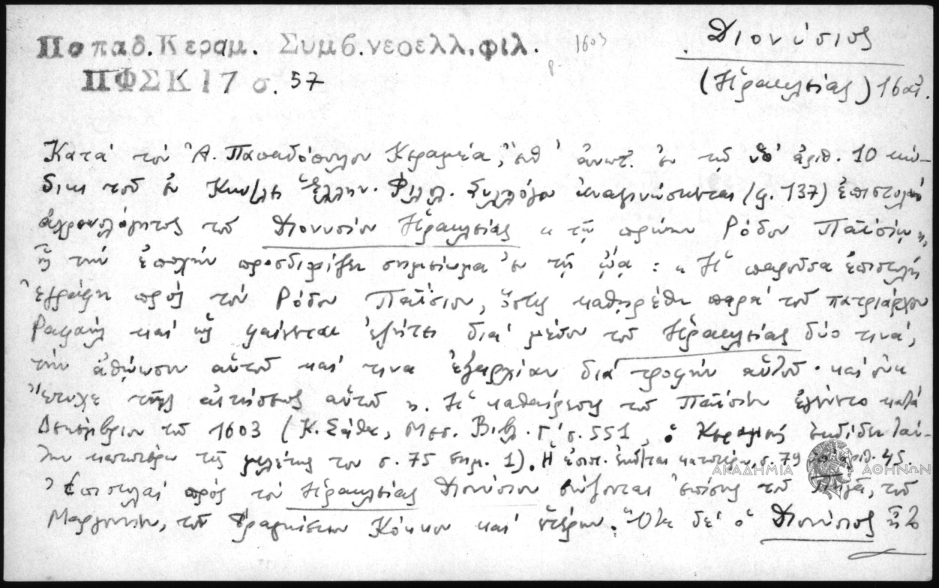 Παπαδ. Κεραμ. Συμβ. νεοελλ. φιλ.
ΠΦΣΚ 17 σ. 57
1603
Διονύσιος
(Ἡρακλείας) 16 αἰ.
Κατὰ τὸν Ἀ. Παπαδόπουλον Κεραμέα, ἐν τῷ ὑπ' ἀριθ. 10 κώ-
δικι τοῦ ἐν Κπόλει Ἑλλην. Φιλολ. Συλλόγου ἀναγινώσκεται (φ. 137) ἐπιστολὴ
ἀχρονολόγητος τοῦ Διονυσίου Ἡρακλείας « τῷ πρώην Ῥόδου Παϊσίῳ »,
ἧς τὴν ἐποχὴν προσδιορίζει σημείωμα ἐν τῇ ᾤᾳ : « Ἡ παροῦσα ἐπιστολὴ
ἐγράφη πρὸς τὸν Ῥόδου Παΐσιον, ὅστις καθῃρέθη παρὰ τοῦ πατριάρχου
Ραφαὴλ καὶ ὡς φαίνεται ἐζήτει διὰ μέσου τοῦ Ἡρακλείας δύο τινά,
τὴν ἀθώωσιν αὐτοῦ καί τινα ἐξαρχίαν διὰ τροφὴν αὐτοῦ · καὶ οὐκ
ἔτυχε τῆς αἰτήσεως αὐτοῦ ». Ἡ καθαίρεσις τοῦ Παϊσίου ἐγένετο κατὰ
Δεκέμβριον τοῦ 1603 (Κ. Σάθα, Μεσ. Βιβλ. Γ' σ. 551, ὁ Κεραμεὺς ἐκδίδει
κατωτέρω τῆς μελέτης του σ. 75 σημ. 1). Ἡ ἐπιστ. ἐκδ/ται κατωτέρω, σ. 79 ἀριθ. 45.
Ἐπιστολαὶ πρὸς τὸν Ἡρακλείας Διονύσιον σώζονται ἐπίσης τοῦ Πηγᾶ, τοῦ
Μαργουνίου, τοῦ Φραγκίσκου Κόκκου καὶ ἑτέρων. Ὅτε δὲ ὁ Διονύσιος
ΑΚΑΔΗΜΙΑ ΑΘΗΝΩΝ